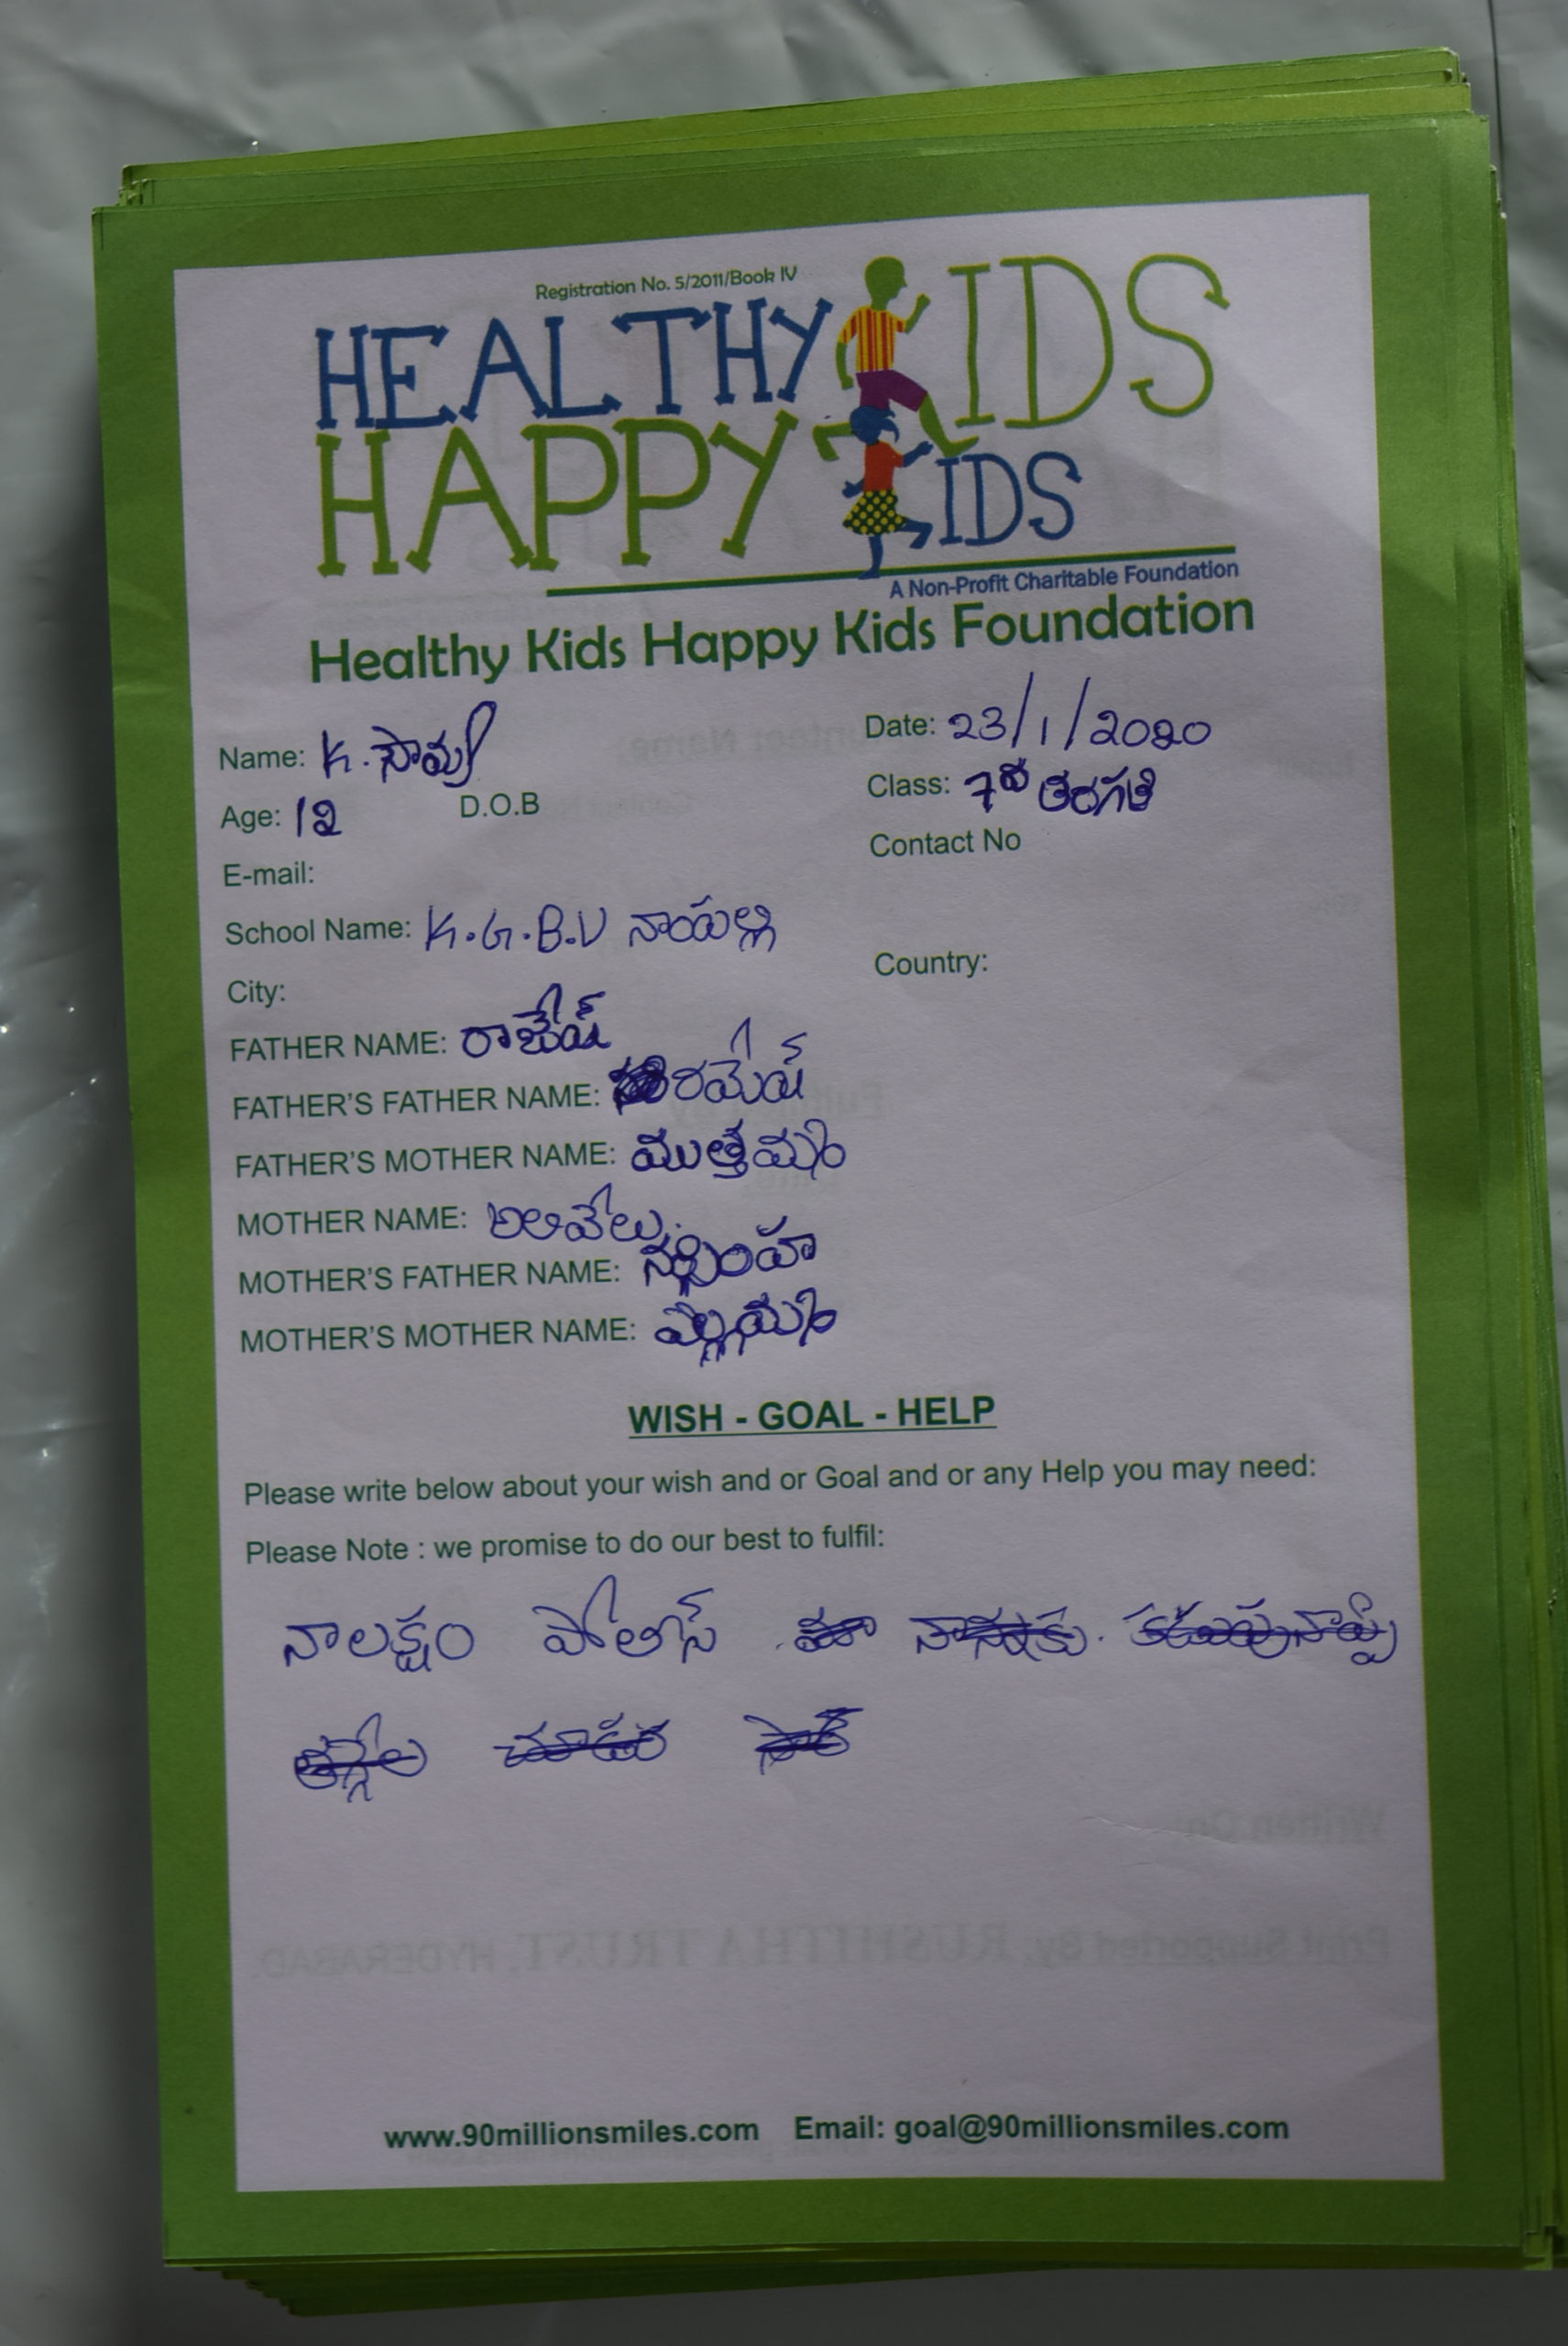 Registration No. 5/2011/Book IV
HEALTHY KIDS
HAPPY KIDS
A Non-Profit Charitable Foundation
Healthy Kids Happy Kids Foundation
Name: K. సౌమ్య
Date: 23/1/2020
Age: 12 D.O.B
Class: 7వ తరగతి
E-mail:
Contact No
School Name: K.G.B.V
City:
Country:
FATHER NAME: రాజేష్
FATHER'S FATHER NAME: రమేష్
FATHER'S MOTHER NAME: ముత్తమ్మ
MOTHER NAME: అలివేలు
MOTHER'S FATHER NAME: నర్సింహ
MOTHER'S MOTHER NAME:
WISH - GOAL - HELP
Please write below about your wish and or Goal and or any Help you may need:
Please Note : we promise to do our best to fulfil:
నా లక్ష్యం పోలీస్
www.90millionsmiles.com Email: goal@90millionsmiles.com